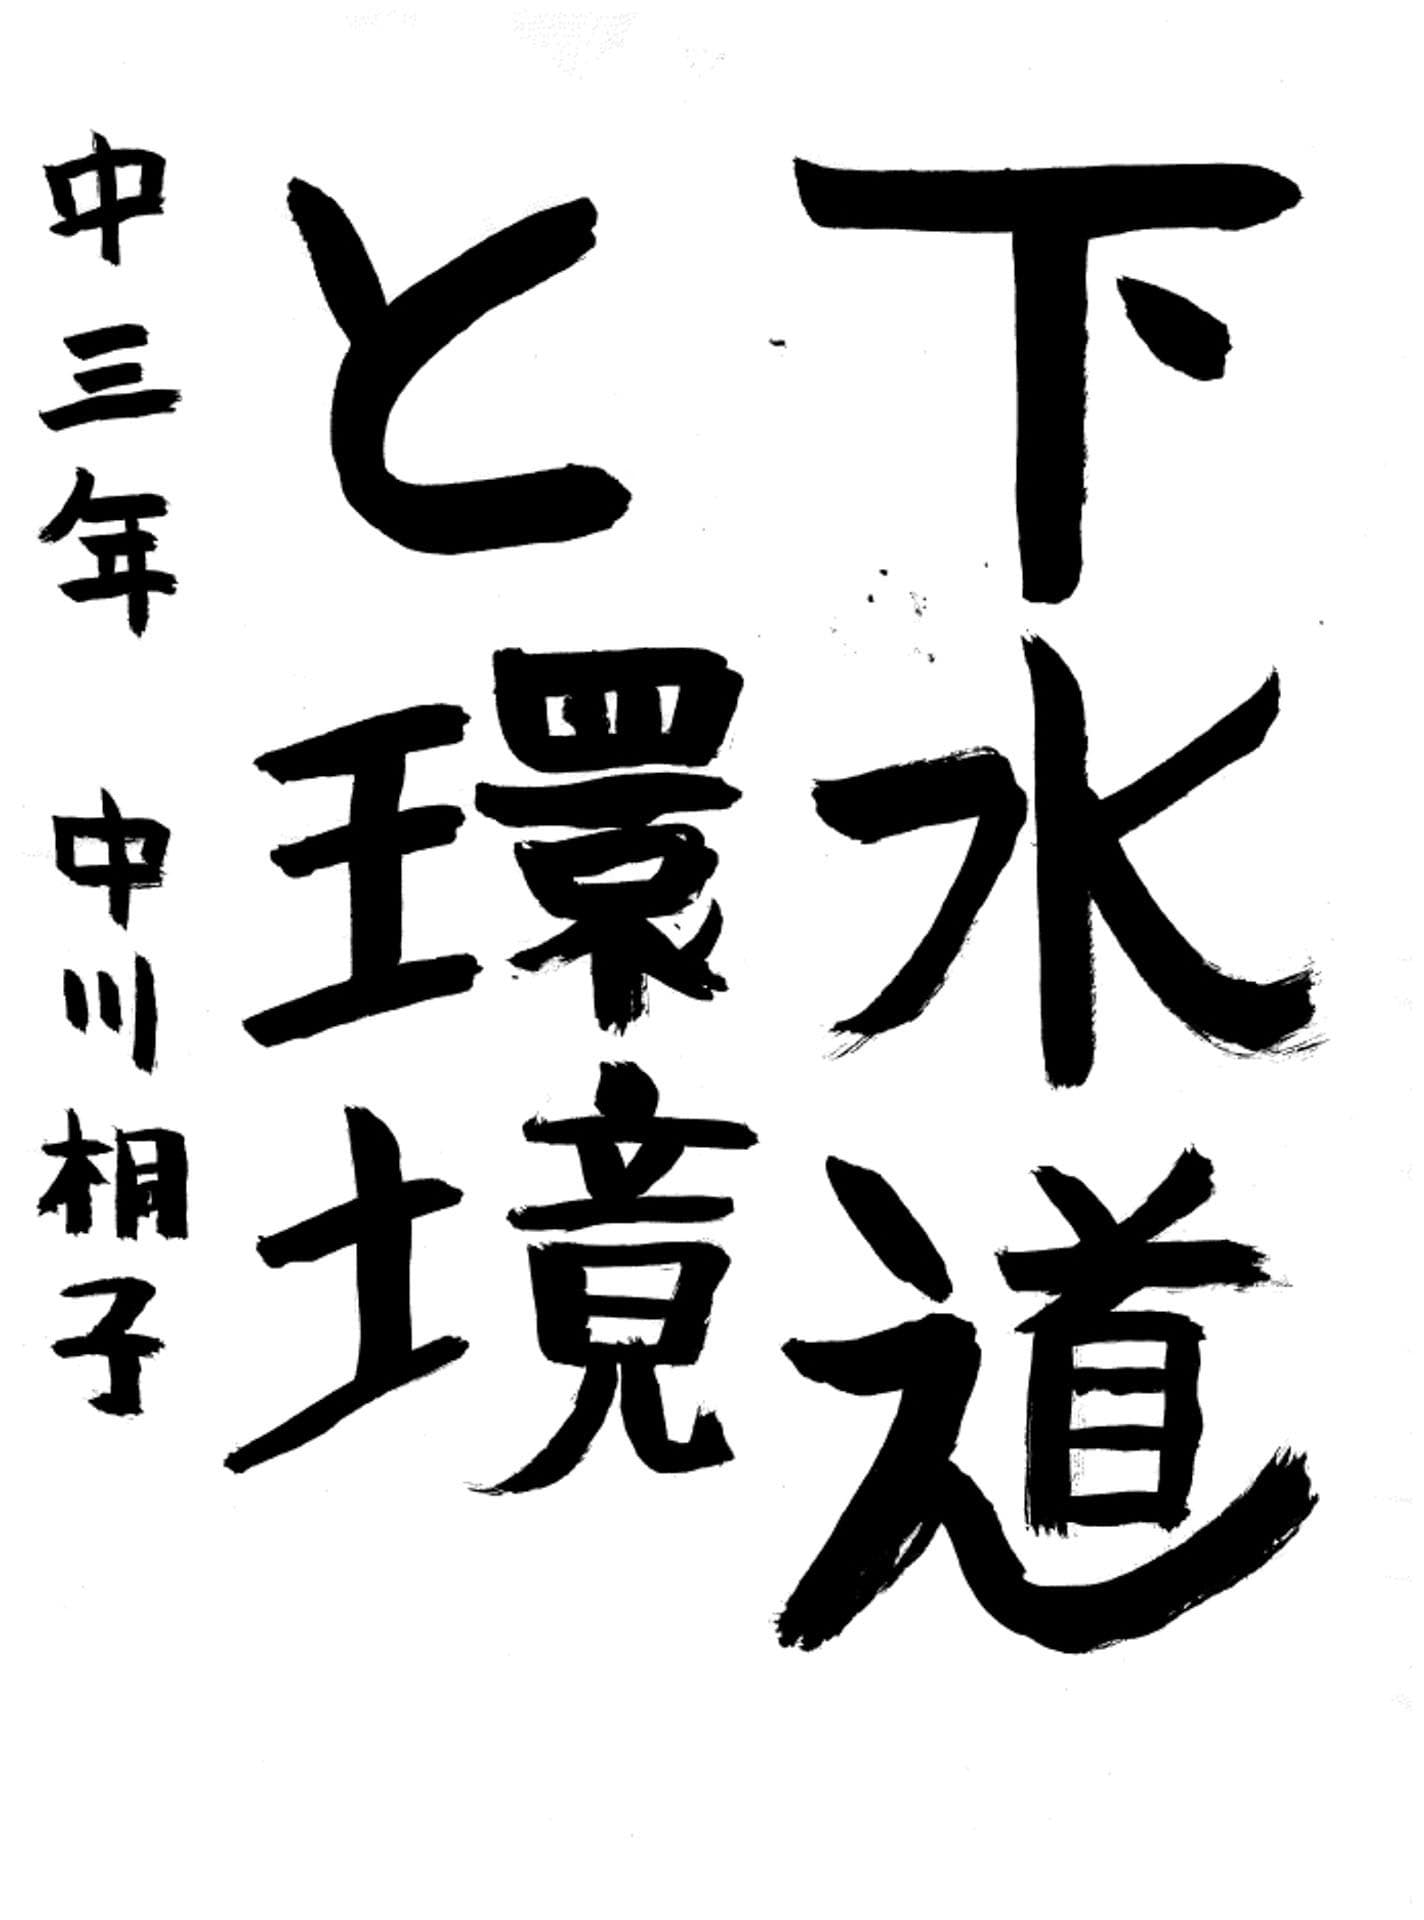 下水道
と環境
中三年 中川相子